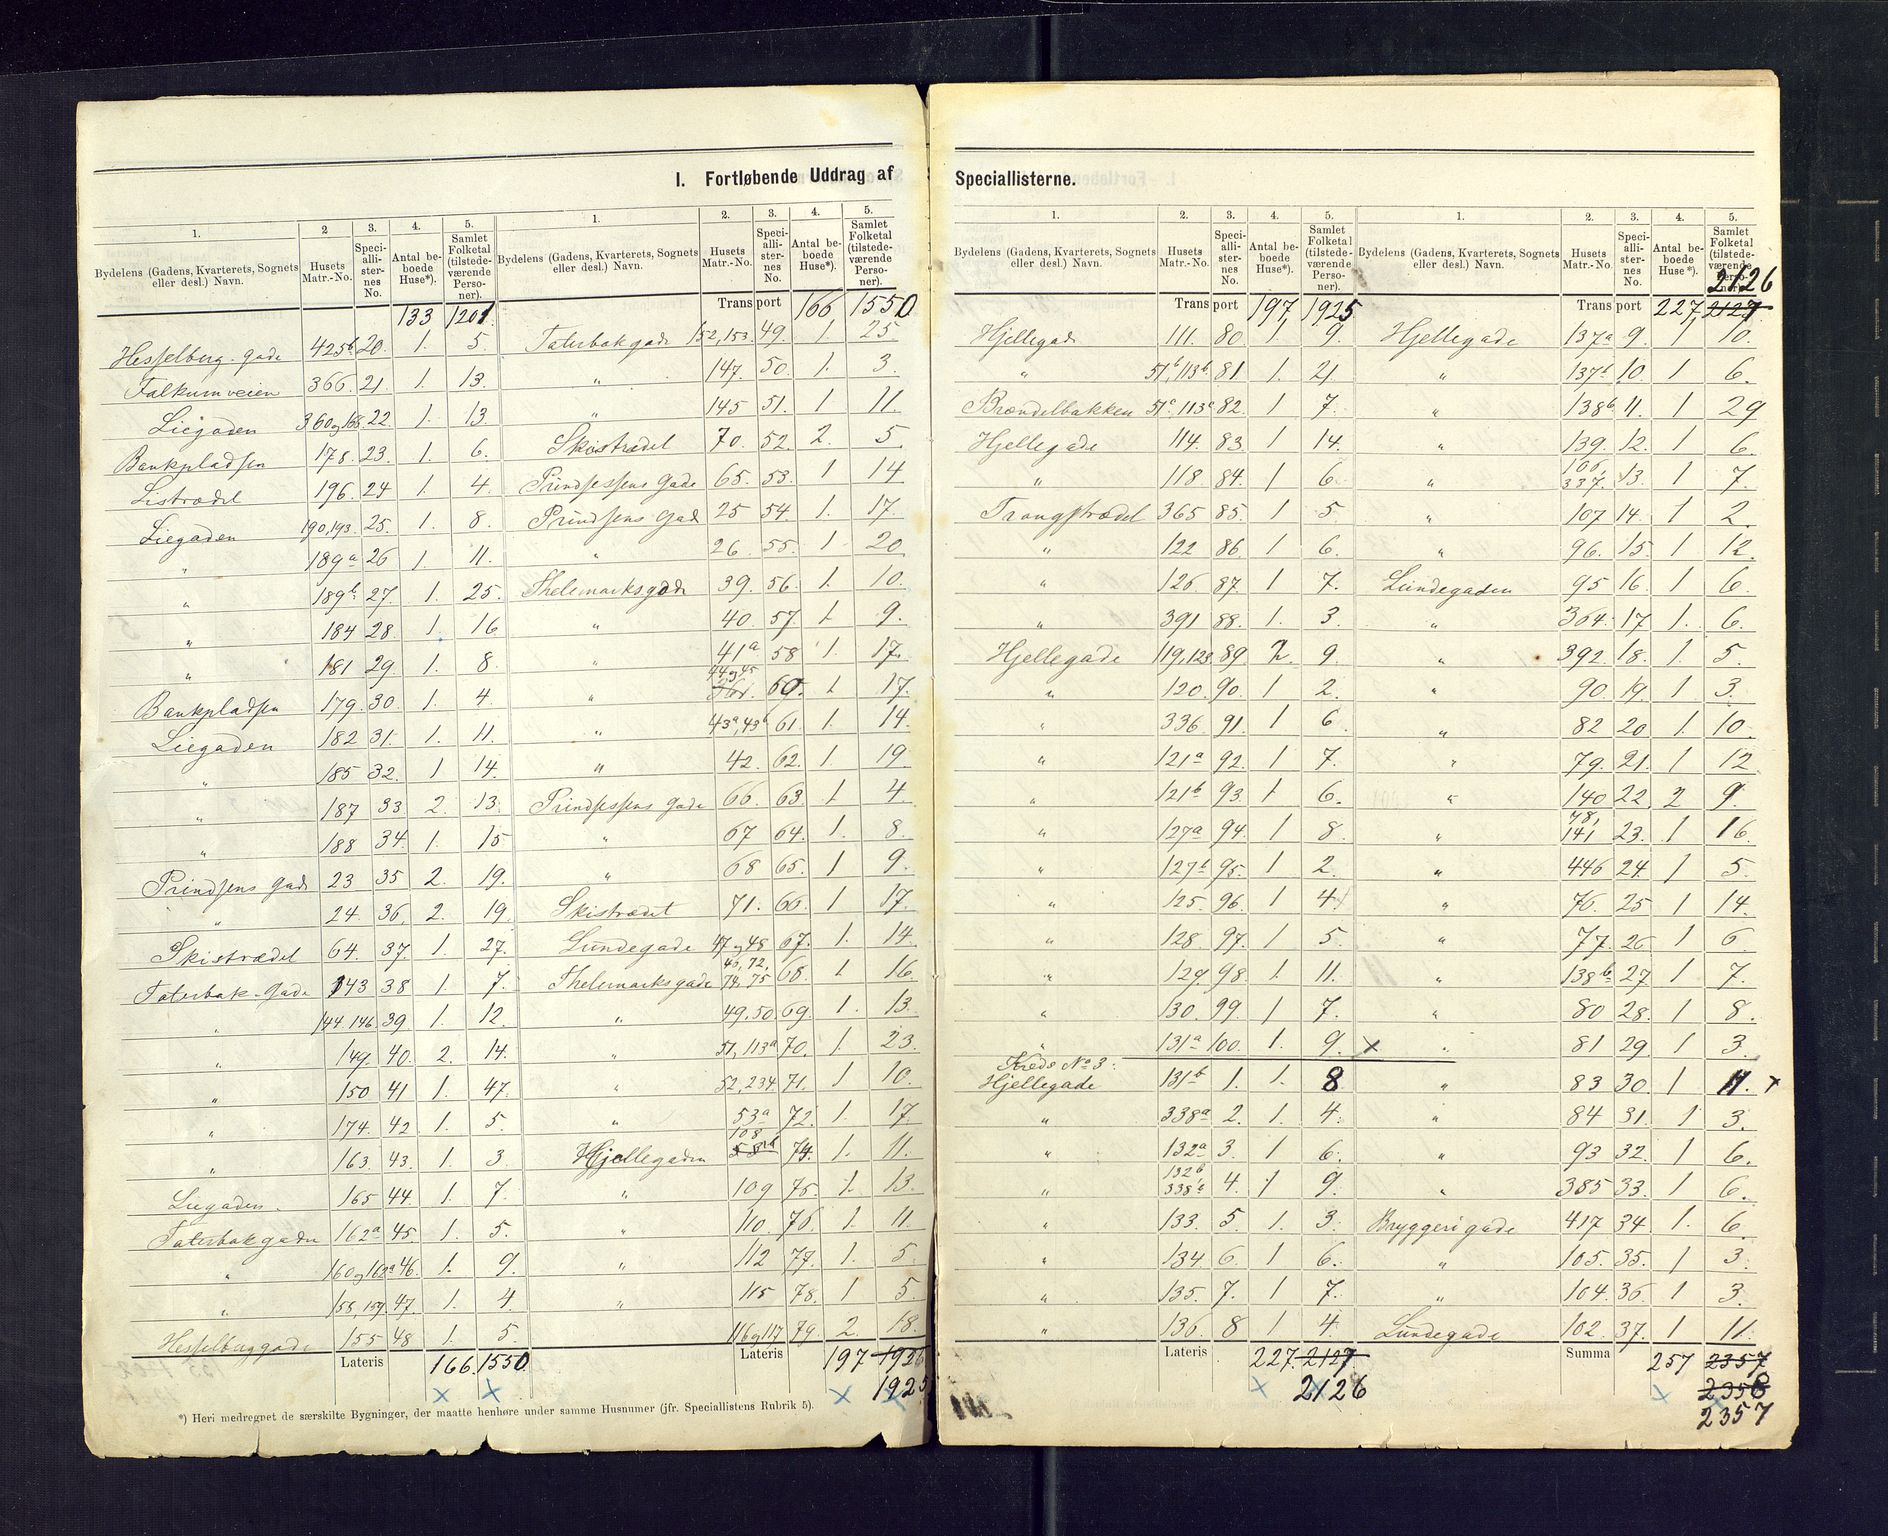 I. Fortløbende Uddrag af Speciallisterne.
1. 2 3. 4. 5. 1. 2. 3. 4. 5.
Bydelens (Gadens, Kvarterets, Sognets eller desl.) Navn. Husets Matr.-No. Specialllisternes No. Antal beboede Huse*). Samlet Folketal (tilstedeværende Personer). Bydelens (Gadens, Kvarterets, Sognets eller desl.) Navn. Husets Matr.-No. Speciallisternes No. Antal beboede Huse*). Samlet Folketal (tilstedeværende Personer).
133 1201. Transport 166 1550
Hesselberg-gade 425b 20. 1. 5. Faterbakgade 152,153 49. 1. 25.
Falkumveien 366. 21. 1. 13. „ 147. 50. 1. 3.
Liegaden 360 og 168 22. 1. 13. „ 145 51. 1 11.
Bankpladsen 178. 23. 1. 6. Skistrædet 70. 52. 2. 5
Listrædet 196. 24 1. 4. Prindsessens Gade 65. 53. 1 14
Liegaden 190,193. 25. 1. 8. Prindsens Gad 25 54. 1. 17.
„ 189a 26 1. 11. „ 26. 55. 1 20
„ 189b 27. 1. 25. Thelemarksgade 39. 56. 1. 10.
„ 184 28. 1. 16 „ 40. 57. 1 9.
„ 181 29. 1. 8. „ 41a 58 1. 17.
Bankpladsen 179. 30. 1. 4. „ 44 og 45 60. 1 17.
Liegaden 182 31. 1. 11. „ 43a, 43b 61. 1. 14.
„ 185 32. 1 14. „ 42. 62. 1. 19.
„ 187 33 2. 13. Prindsessens Gade 66. 63. 1 4.
„ 188 34. 1. 15. „ 67 64. 1. 8.
Prindsens Gade 23 35 2. 19. „ 68 65. 1 9.
„ 24. 36. 2. 19. Skistrædet 71. 66. 1 17.
Skistrædet 64. 37. 1. 27. Lundegade 47 og 48 67. 1. 14.
Faterbak-Gade 143 38 1. 7. Thelemarksgade 46, 72, 74, 75 68. 1 16.
„ 144. 146. 39 1. 12. „ 49, 50. 69. 1. 13.
„ 149. 40. 2. 14. „ 51, 113a 70. 1. 23.
„ 150 41 1. 47. „ 52, 234 71. 1 10.
„ 174. 42 1. 5. „ 53a 72. 1. 17.
„ 163. 43. 1. 3 Hjellegaden 108 53b 74. 1. 11.
Liegaden 165 44. 1. 7. „ 109 75. 1. 13.
Faterbakgaden 162a 45. 1. 5. „ 110. 76. 1. 11.
„ 160 og 162a 46. 1. 9. „ 112 77. 1. 5.
„ 158, 159. 47. 1. 4. „ 115 78. 1 5.
Hesselberggade 155 48 1. 5. „ 116 og 117 79 2. 18.
Lateris 166. 1550. Lateris 197 1926
1925
*) Heri medregnet de særskilte Bygninger, der maatte henhøre under samme Husnumer (jfr. Speciallistens Rubrik 5).
1. 2. 3. 4. 5. 1. 2. 3. 4. 5.
Bydelens (Gadens, Kvarterets, Sognets eller desl.) Navn. Husets Matr.-No. Speciallisternes No. Antal beboede Huse*). Samlet Folketal (tilstedeværende Personer). Bydelens (Gadens, Kvarterets, Sognets eller desl.) Navn. Husets Matr.-No. Speciallisternes No. Antal beboede Huse*). Samlet Folketal (tilstedeværende Personer).
2126
Transport 197 1925 Transport 227 2127
Hjellegade 111. 80. 1. 9. Hjellegade 137a 9. 1 10.
„ 51b, 113b. 81. 1. 21. „ 137b 10. 1 6.
Brændelbakken 51c, 113a 82. 1 7. „ 138b 11. 1 29
Hjellegade 114. 83. 1 14. „ 139. 12. 1 6.
„ 118 84. 1 6 „ 100, 337. 13. 1 7.
Trangstrædet 365 85. 1 5 „ 107 14. 1 2.
„ 122 86. 1 6. „ 96. 15. 1 12.
„ 126 87. 1 7. Lundegaden 95 16. 1 6.
„ 391 88. 1. 3. „ 364. 17 1. 6.
Hjellegade 119, 123. 89. 2. 9. „ 392. 18. 1. 5.
„ 120. 90. 1 2. „ 90 19. 1 3.
„ 336 91. 1 6. „ 82 20 1. 10.
„ 121a 92. 1 7. „ 79. 21. 1 12.
„ 121b 93. 1 6. „ 140 22. 2 9.
„ 127a 94. 1 8. „ 78, 141 23. 1 16
„ 127b 95. 1 2. „ 446 24. 1 5
„ 125 96. 1 4. „ 76. 25 1 14.
„ 128. 97. 1 5. „ 77. 26 1 6.
„ 129. 98. 1. 11. „ 138b 27. 1 7.
„ 130. 99. 1 7. „ 80 28. 1 8.
„ 131a 100. 1. 9. x „ 81 29. 1 3.
Kreds No 3.
Hjellegade 131b 1. 1. 8 „ 83 30. 1 11. x
„ 338a 2. 1 4. „ 84 31. 1 3.
„ 132a 3. 1 6. „ 93 32. 1 6.
„ 132b 338a 4. 1 9. „ 385 33. 1 6.
„ 133. 5. 1. 3. Bryggerigade 417 34 1. 6.
„ 134 6. 1 6. „ 105. 35. 1 3.
„ 135. 7. 1 7. „ 104. 36. 1 3.
„ 136. 8 1 4. Lundegade 102. 37. 1 11.
Lateris 227. 2127 Summa 257 2357
2126 2358
2357